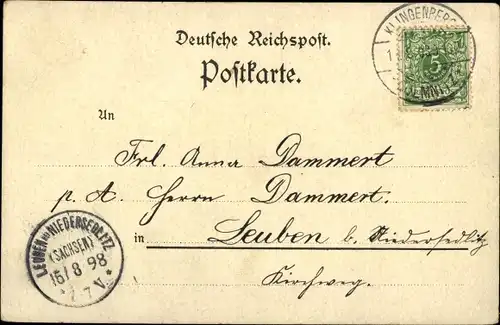 Deutsche Reichspost.
Postkarte.
KLINGENBERG
COLMNITZ
5
An
Frl. Anna Dammert
p. A. Herrn Dammert.
in Leuben b. Niedersedlitz
Kirchweg.
LEUBEN NIEDERSEDLITZ
(SACHSEN)
15/8 98
7 V.